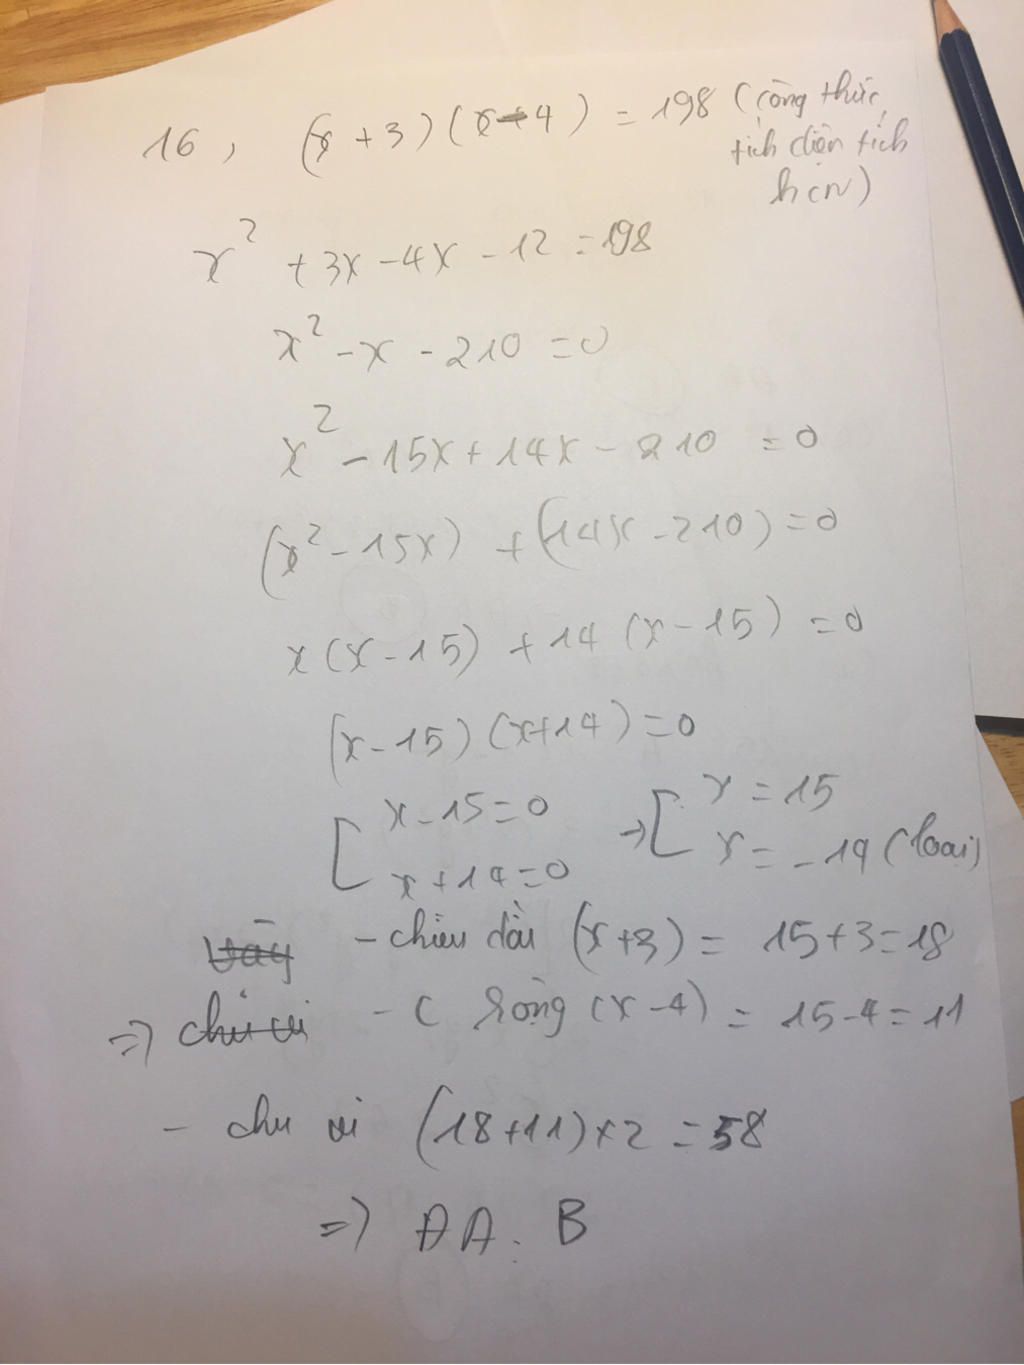 16, (x + 3)(x - 4) = 198 (công thức
tích diện tích
hcn)
x² + 3x - 4x - 12 = 198
x² - x - 210 = 0
x² - 15x + 14x - 210 = 0
(x² - 15x) + (14x - 210) = 0
x(x - 15) + 14 (x - 15) = 0
(x - 15)(x + 14) = 0
[ x - 15 = 0 → [ x = 15
x + 14 = 0 x = -14 (loại)
Vậy - chiều dài (x + 3) = 15 + 3 = 18
=> chu vi - C rộng (x - 4) = 15 - 4 = 11
- chu vi (18 + 11) x 2 = 58
=> ĐA. B